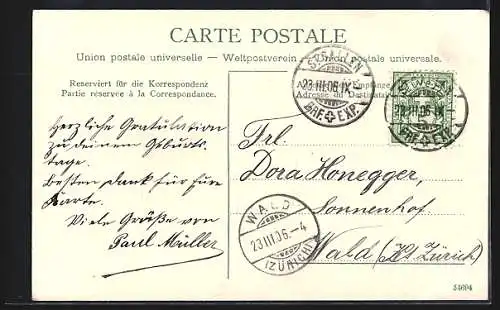 CARTE POSTALE
Union postale universelle — Weltpostverein — Union postale universale.
Reserviert für die Korrespondenz
Partie réservée à la Correspondance.
Adresse du
ST. GALLEN
23.III.06.IX
BRF. EXP.
23.III.06.IX
BRF. EXP.
Herzliche Gratulation
zu deinem Geburts-
tage.
Besten Dank für Eure
Karte.
Viele Grüße von
Paul Müller
Frl.
Dora Honegger,
Sonnenhof.
Wald (Kt. Zürich)
WALD
23.III.06.-4
(ZÜRICH)